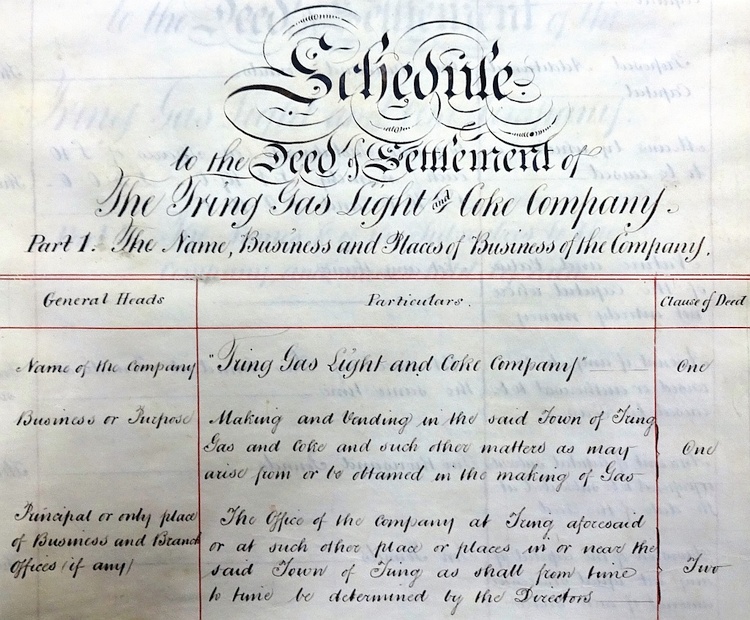 Schedule
to the Deed of Settlement of
The Tring Gas Light and Coke Company.
Part 1. The Name, Business and Places of Business of the Company.
General Heads
Particulars.
Clause of Deed
Name of the Company
"Tring Gas Light and Coke Company"
One
Business or Purpose
Making and Vending in the said Town of Tring
Gas and Coke and such other matters as may
arise from or be obtained in the making of Gas
One
Principal or only place
of Business and Branch
Offices (if any)
The Office of the Company at Tring aforesaid
or at such other place or places in or near the
said Town of Tring as shall from time
to time be determined by the Directors
Two